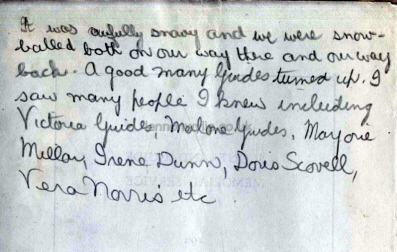 It was awfully snowy and we were snow-
balled both on our way there and our way
back. A good many Guides turned up. I
saw many people I knew including
Victoria Guides, Malone Guides, Marjorie
Millay, Irene Dunn, Doris Scovell,
Vera Norris etc